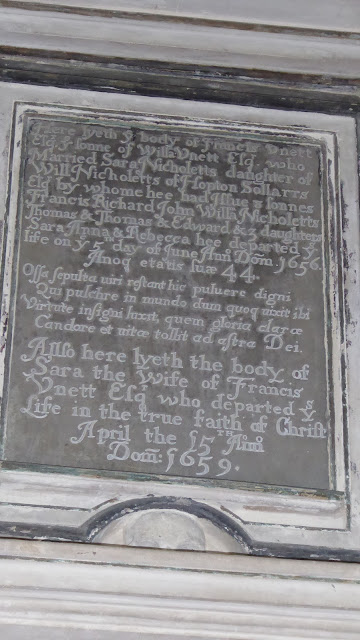 Here lyeth yͤ body of Francis Vnett
Esqͬ yͤ sonne of Willᵐ Vnett Esqͬ who
Married Sara Nicholetts daughter of
Will Nicholetts of Hopton Sollarrs
Esqͬ by whome hee had Issue 7 sonnes
Francis Richard John Willᵐ Nicholetts
Thomas & Thomas & Edward & 3 daughters
Sara Anna & Rebecca hee departed yˢ
life on yͤ 5ᵗʰ day of June Ann Dom̄ 1656.
Anoq etatis suæ 44.
Ossa sepulta uiri restant hic puluere digni
Qui pulchre in mundo dum quoq uixit ibi
Virtute insigni luxit, quem gloria claræ
Candore et uitæ tollit ad astra Dei.
Allso here lyeth the body of
Sara the Wife of Francis
Vnett Esqͬ who departed yˢ
Life in the true faith of Christ
April the 15ᵗʰ Ann̄o
Dom̄: 1659.